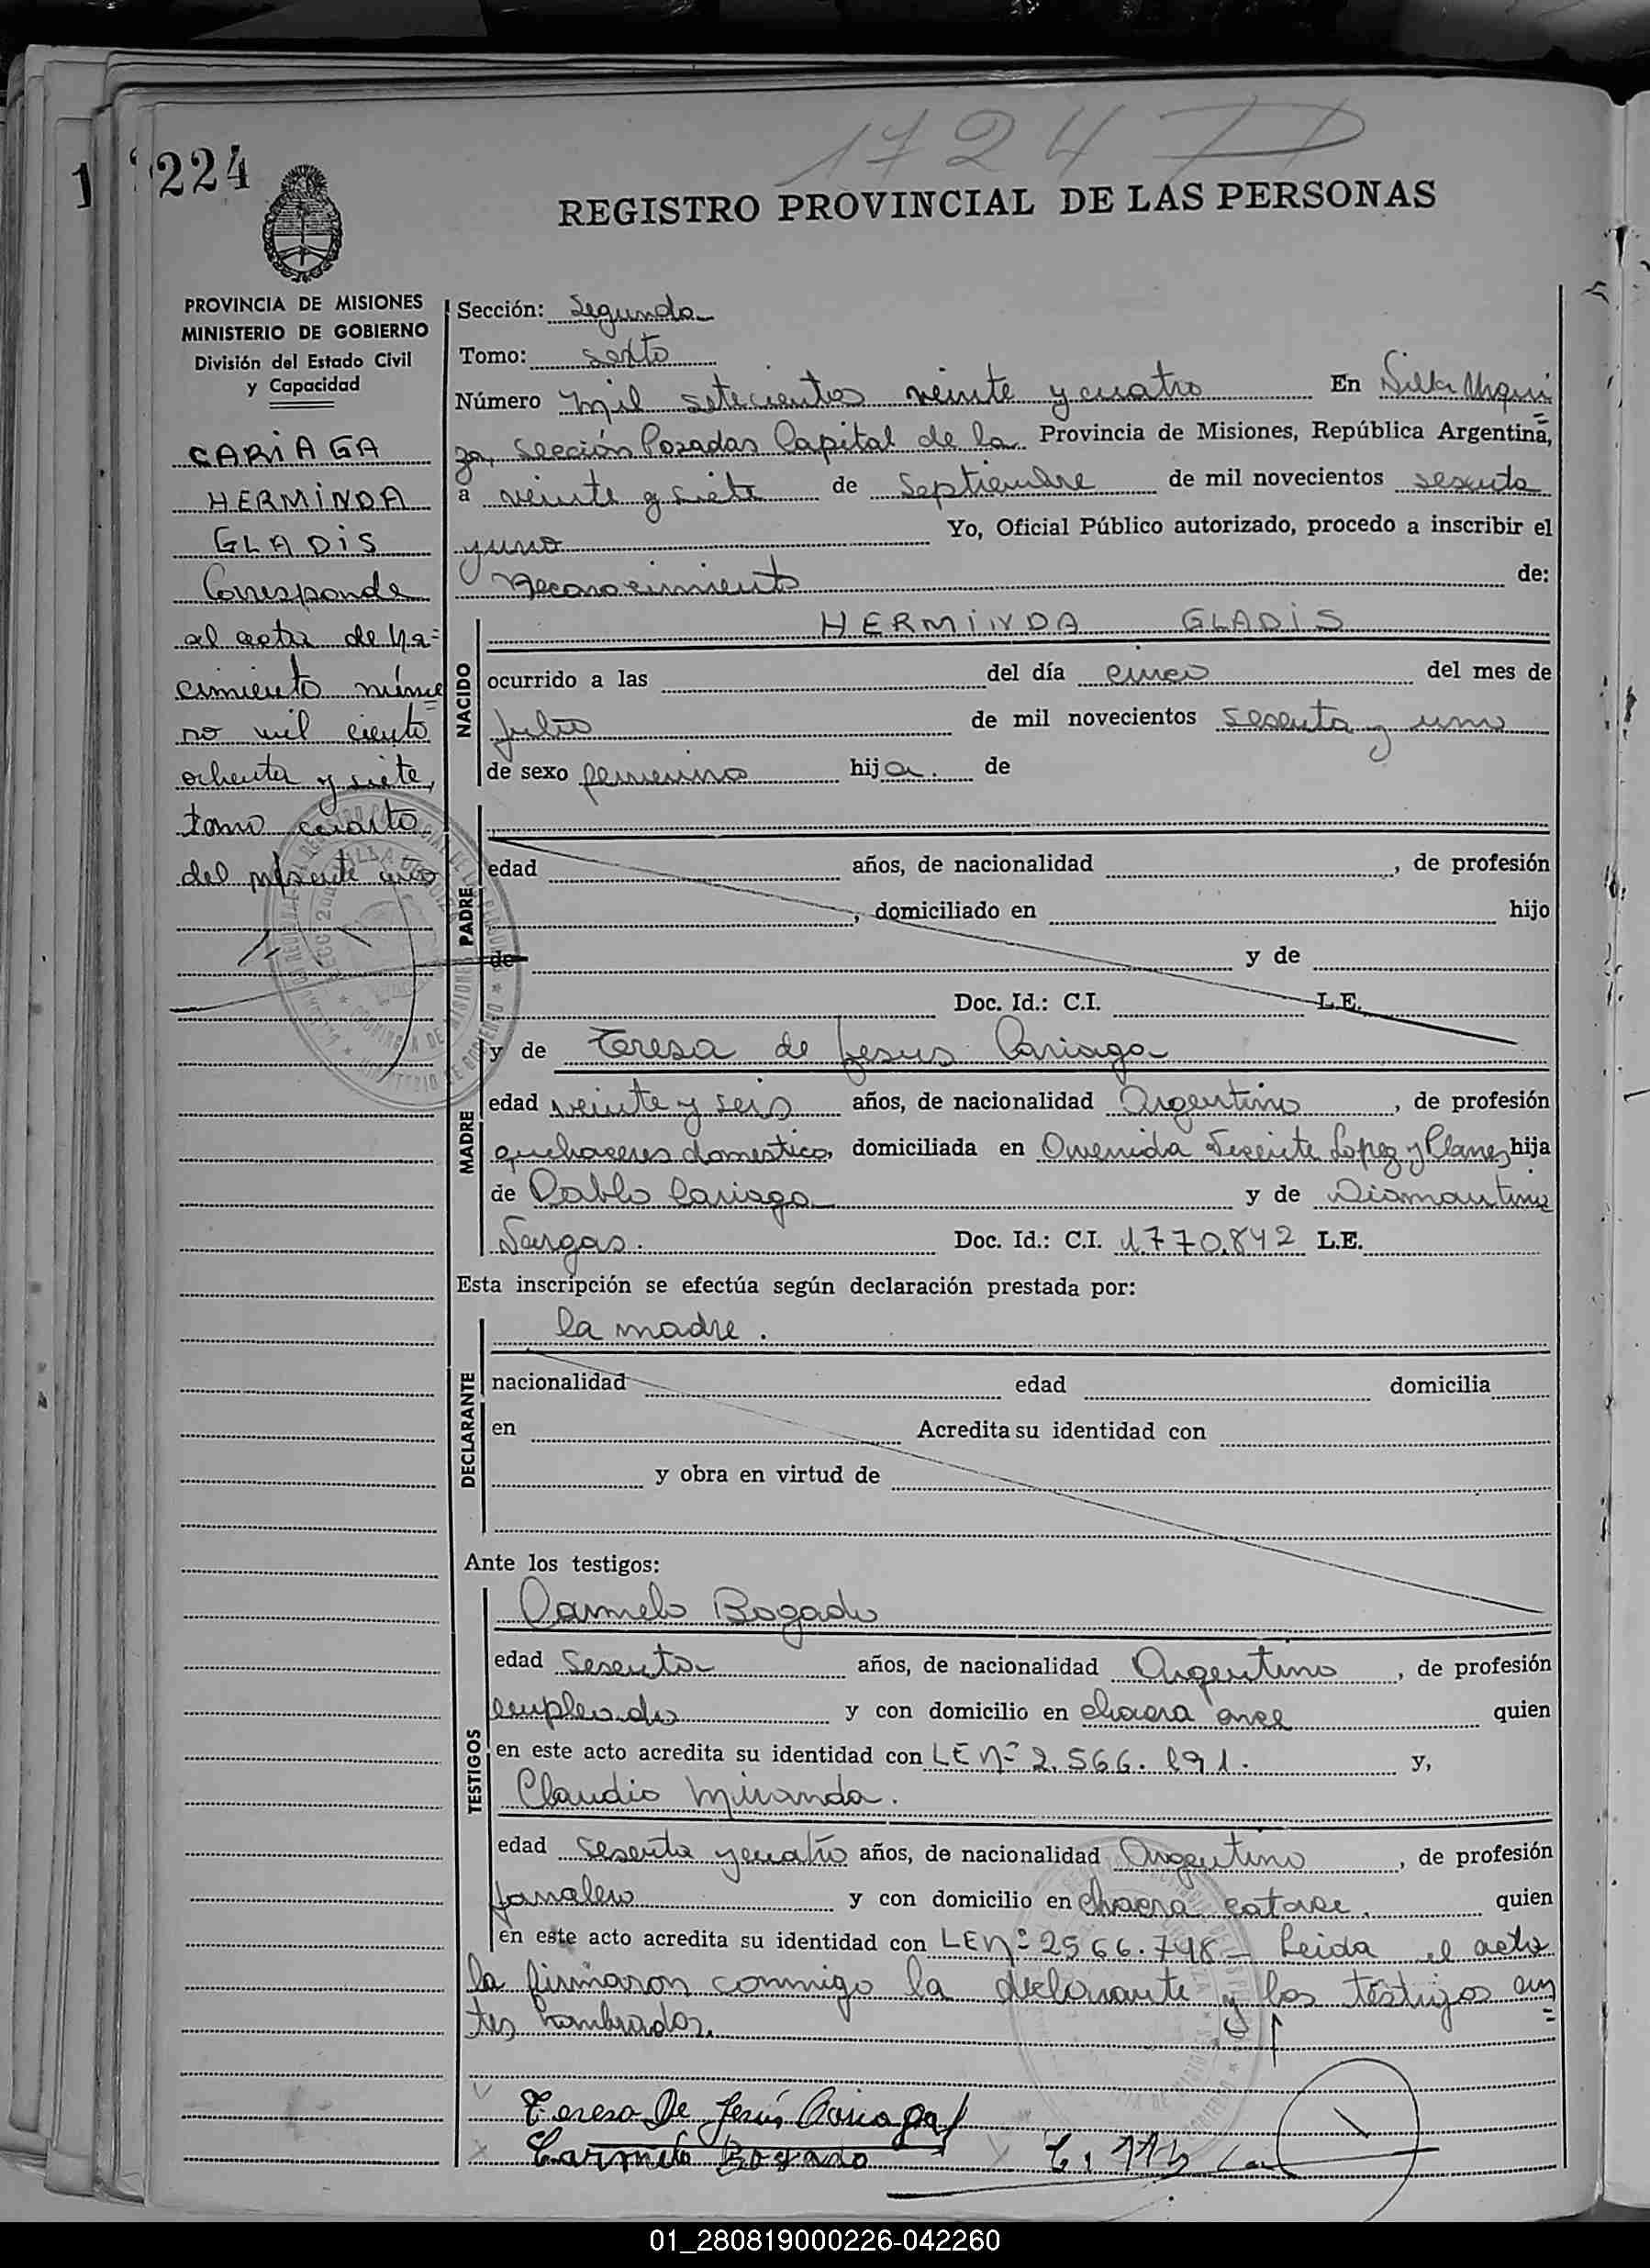 1724
1 224
REGISTRO PROVINCIAL DE LAS PERSONAS
PROVINCIA DE MISIONES
MINISTERIO DE GOBIERNO
División del Estado Civil
y Capacidad
CARIAGA
HERMINDA
GLADIS
Corresponde
al acta de na=
cimiento núme
ro mil ciento
ochenta y siete,
tomo cuarto
del presente año
Sección: Segunda
Tomo: sexto
Número mil setecientos veinte y cuatro En Villa Urqui=
za, Sección Posadas Capital de la Provincia de Misiones, República Argentina,
a veinte y siete de Septiembre de mil novecientos sesenta
y uno Yo, Oficial Público autorizado, procedo a inscribir el
Reconocimiento de:
NACIDO
HERMINDA GLADIS
ocurrido a las del día cinco del mes de
Julio de mil novecientos sesenta y uno
de sexo femenino hija. de
PADRE
edad años, de nacionalidad , de profesión
, domiciliado en hijo
de y de
Doc. Id.: C.I. L.E.
MADRE
y de Teresa de Jesus Cariaga
edad veinte y seis años, de nacionalidad Argentina, de profesión
quehaceres domestico, domiciliada en Avenida Vicente Lopez y Planes hija
de Pablo Cariaga y de Diamantina
Vargas. Doc. Id.: C.I. 1.770.842 L.E.
Esta inscripción se efectúa según declaración prestada por:
DECLARANTE
la madre.
nacionalidad edad domicilia
en Acredita su identidad con
y obra en virtud de
Ante los testigos:
TESTIGOS
Carmelo Bogado
edad Sesenta años, de nacionalidad Argentino, de profesión
empleado y con domicilio en chacra once quien
en este acto acredita su identidad con LE Nº 2.566.191. y,
Claudio Miranda.
edad sesenta y cuatro años, de nacionalidad Argentino, de profesión
Jornalero y con domicilio en chacra catorce. quien
en este acto acredita su identidad con LE Nº 2566.748 - Leida el acta
la firmaron conmigo la declarante y los testigos an=
tes nombrados.
Teresa De Jesús Cariaga
Carmelo Bogado
01_280819000226-042260